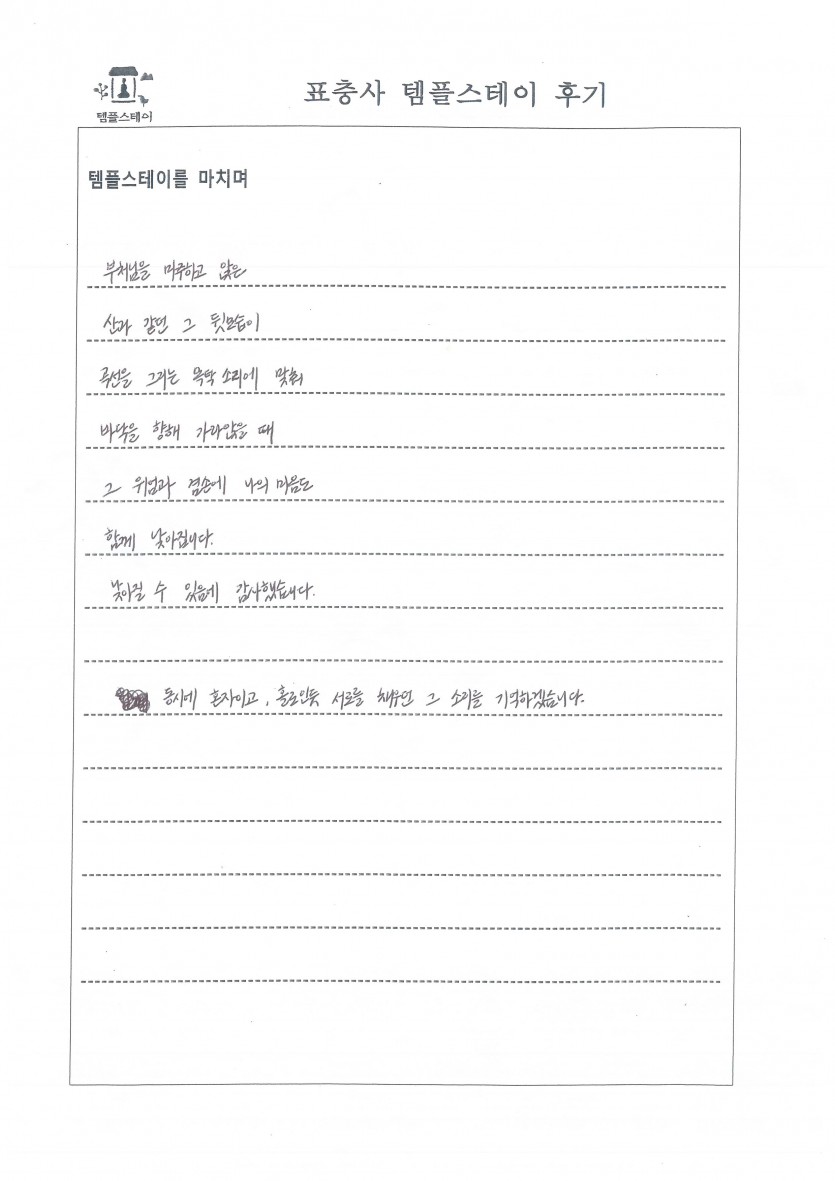 템플스테이
표충사 템플스테이 후기
템플스테이를 마치며
부처님을 마주하고 앉은
산과 같던 그 뒷모습이
곡선을 그리는 목탁 소리에 맞춰
바닥을 향해 가라앉을 때
그 위엄과 겸손에 나의 마음도
함께 낮아집니다.
낮아질 수 있음에 감사했습니다.
동시에 혼자이고, 홀로인듯 서로를 채우던 그 소리를 기억하겠습니다.